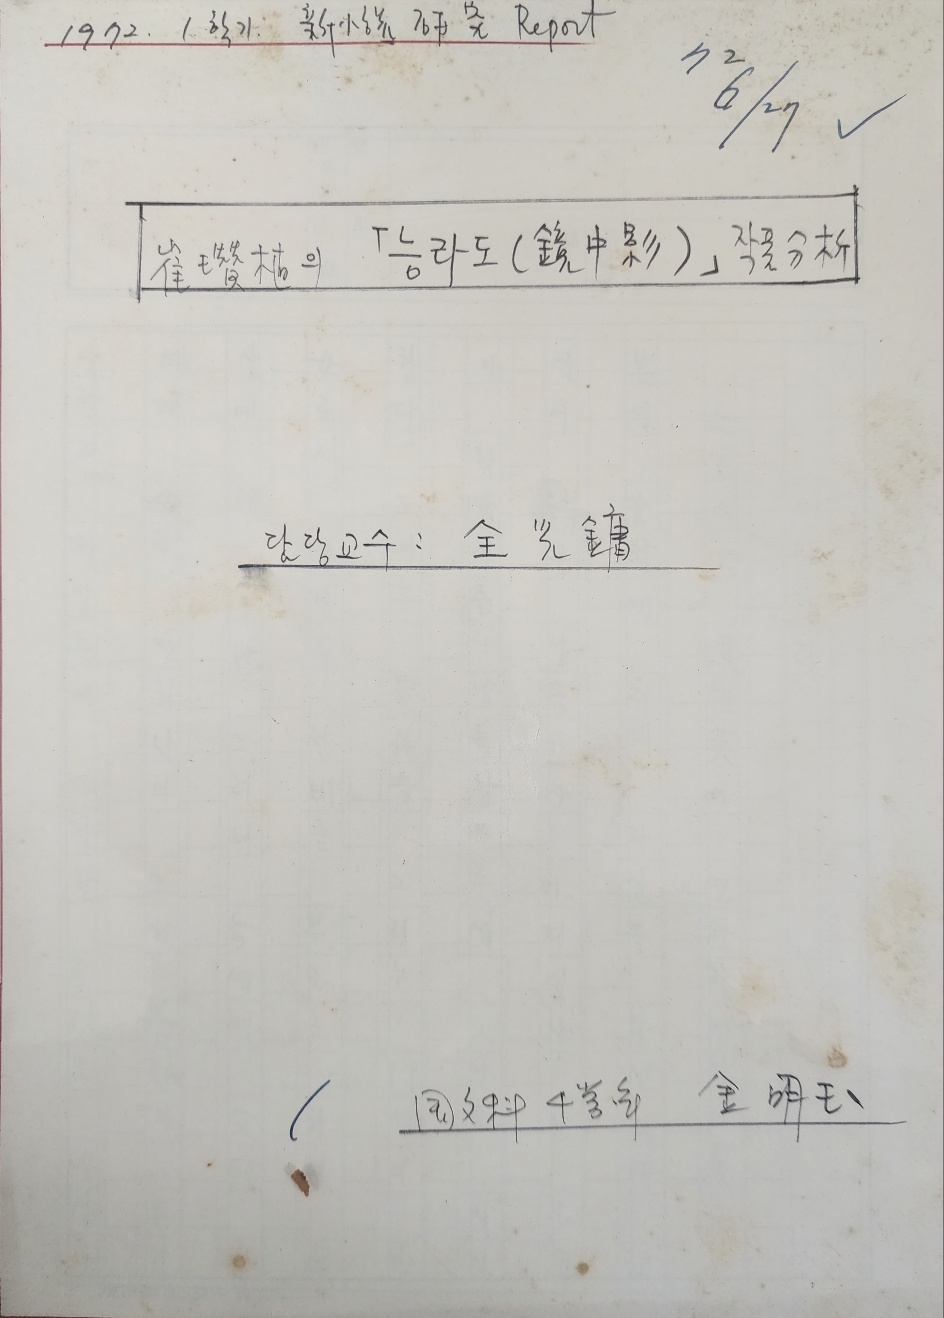 1972. 1학기. 新小説 研究 Report
72
6/27
崔瓚植의 「능라도(鏡中影)」작품分析
담당교수: 全光鏞
国文科 4学年 金明玉